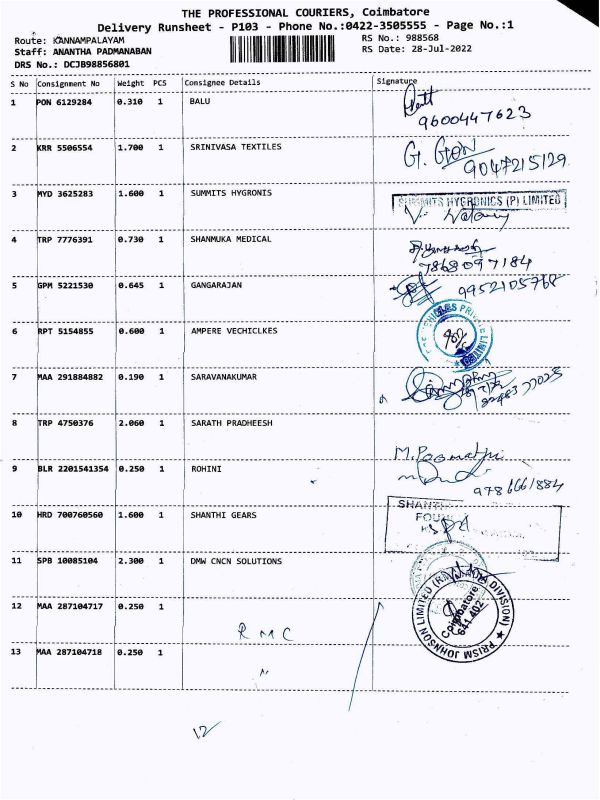 THE PROFESSIONAL COURIERS, Coimbatore
Delivery Runsheet - P103 - Phone No.:0422-3505555 - Page No.:1
Route: KANNAMPALAYAM
RS No.: 988568
Staff: ANANTHA PADMANABAN
RS Date: 28-Jul-2022
DRS No.: DCJB98856801
S No Consignment No Weight PCS Consignee Details Signature
1 PON 6129284 0.310 1 BALU
9600447623
2 KRR 5506554 1.700 1 SRINIVASA TEXTILES
G.
9047215129
3 MYD 3625283 1.600 1 SUMMITS HYGRONIS
SUMMITS HYGRONICS (P) LIMITED
4 TRP 7776391 0.730 1 SHANMUKA MEDICAL
7868097184
5 GPM 5221530 0.645 1 GANGARAJAN
9952105768
6 RPT 5154855 0.600 1 AMPERE VECHICLKES
7 MAA 291884882 0.190 1 SARAVANAKUMAR
8 TRP 4750376 2.060 1 SARATH PRADHEESH
M. Poomathi
9 BLR 2201541354 0.250 1 ROHINI
9786661884
10 HRD 700760560 1.600 1 SHANTHI GEARS
SHANTHI
11 SPB 10085104 2.300 1 DMW CNCN SOLUTIONS
12 MAA 287104717 0.250 1
RMC
PRISM JOHNSON LIMITED (RMC DIVISION)
Coimbatore
641 402
13 MAA 287104718 0.250 1
"
12